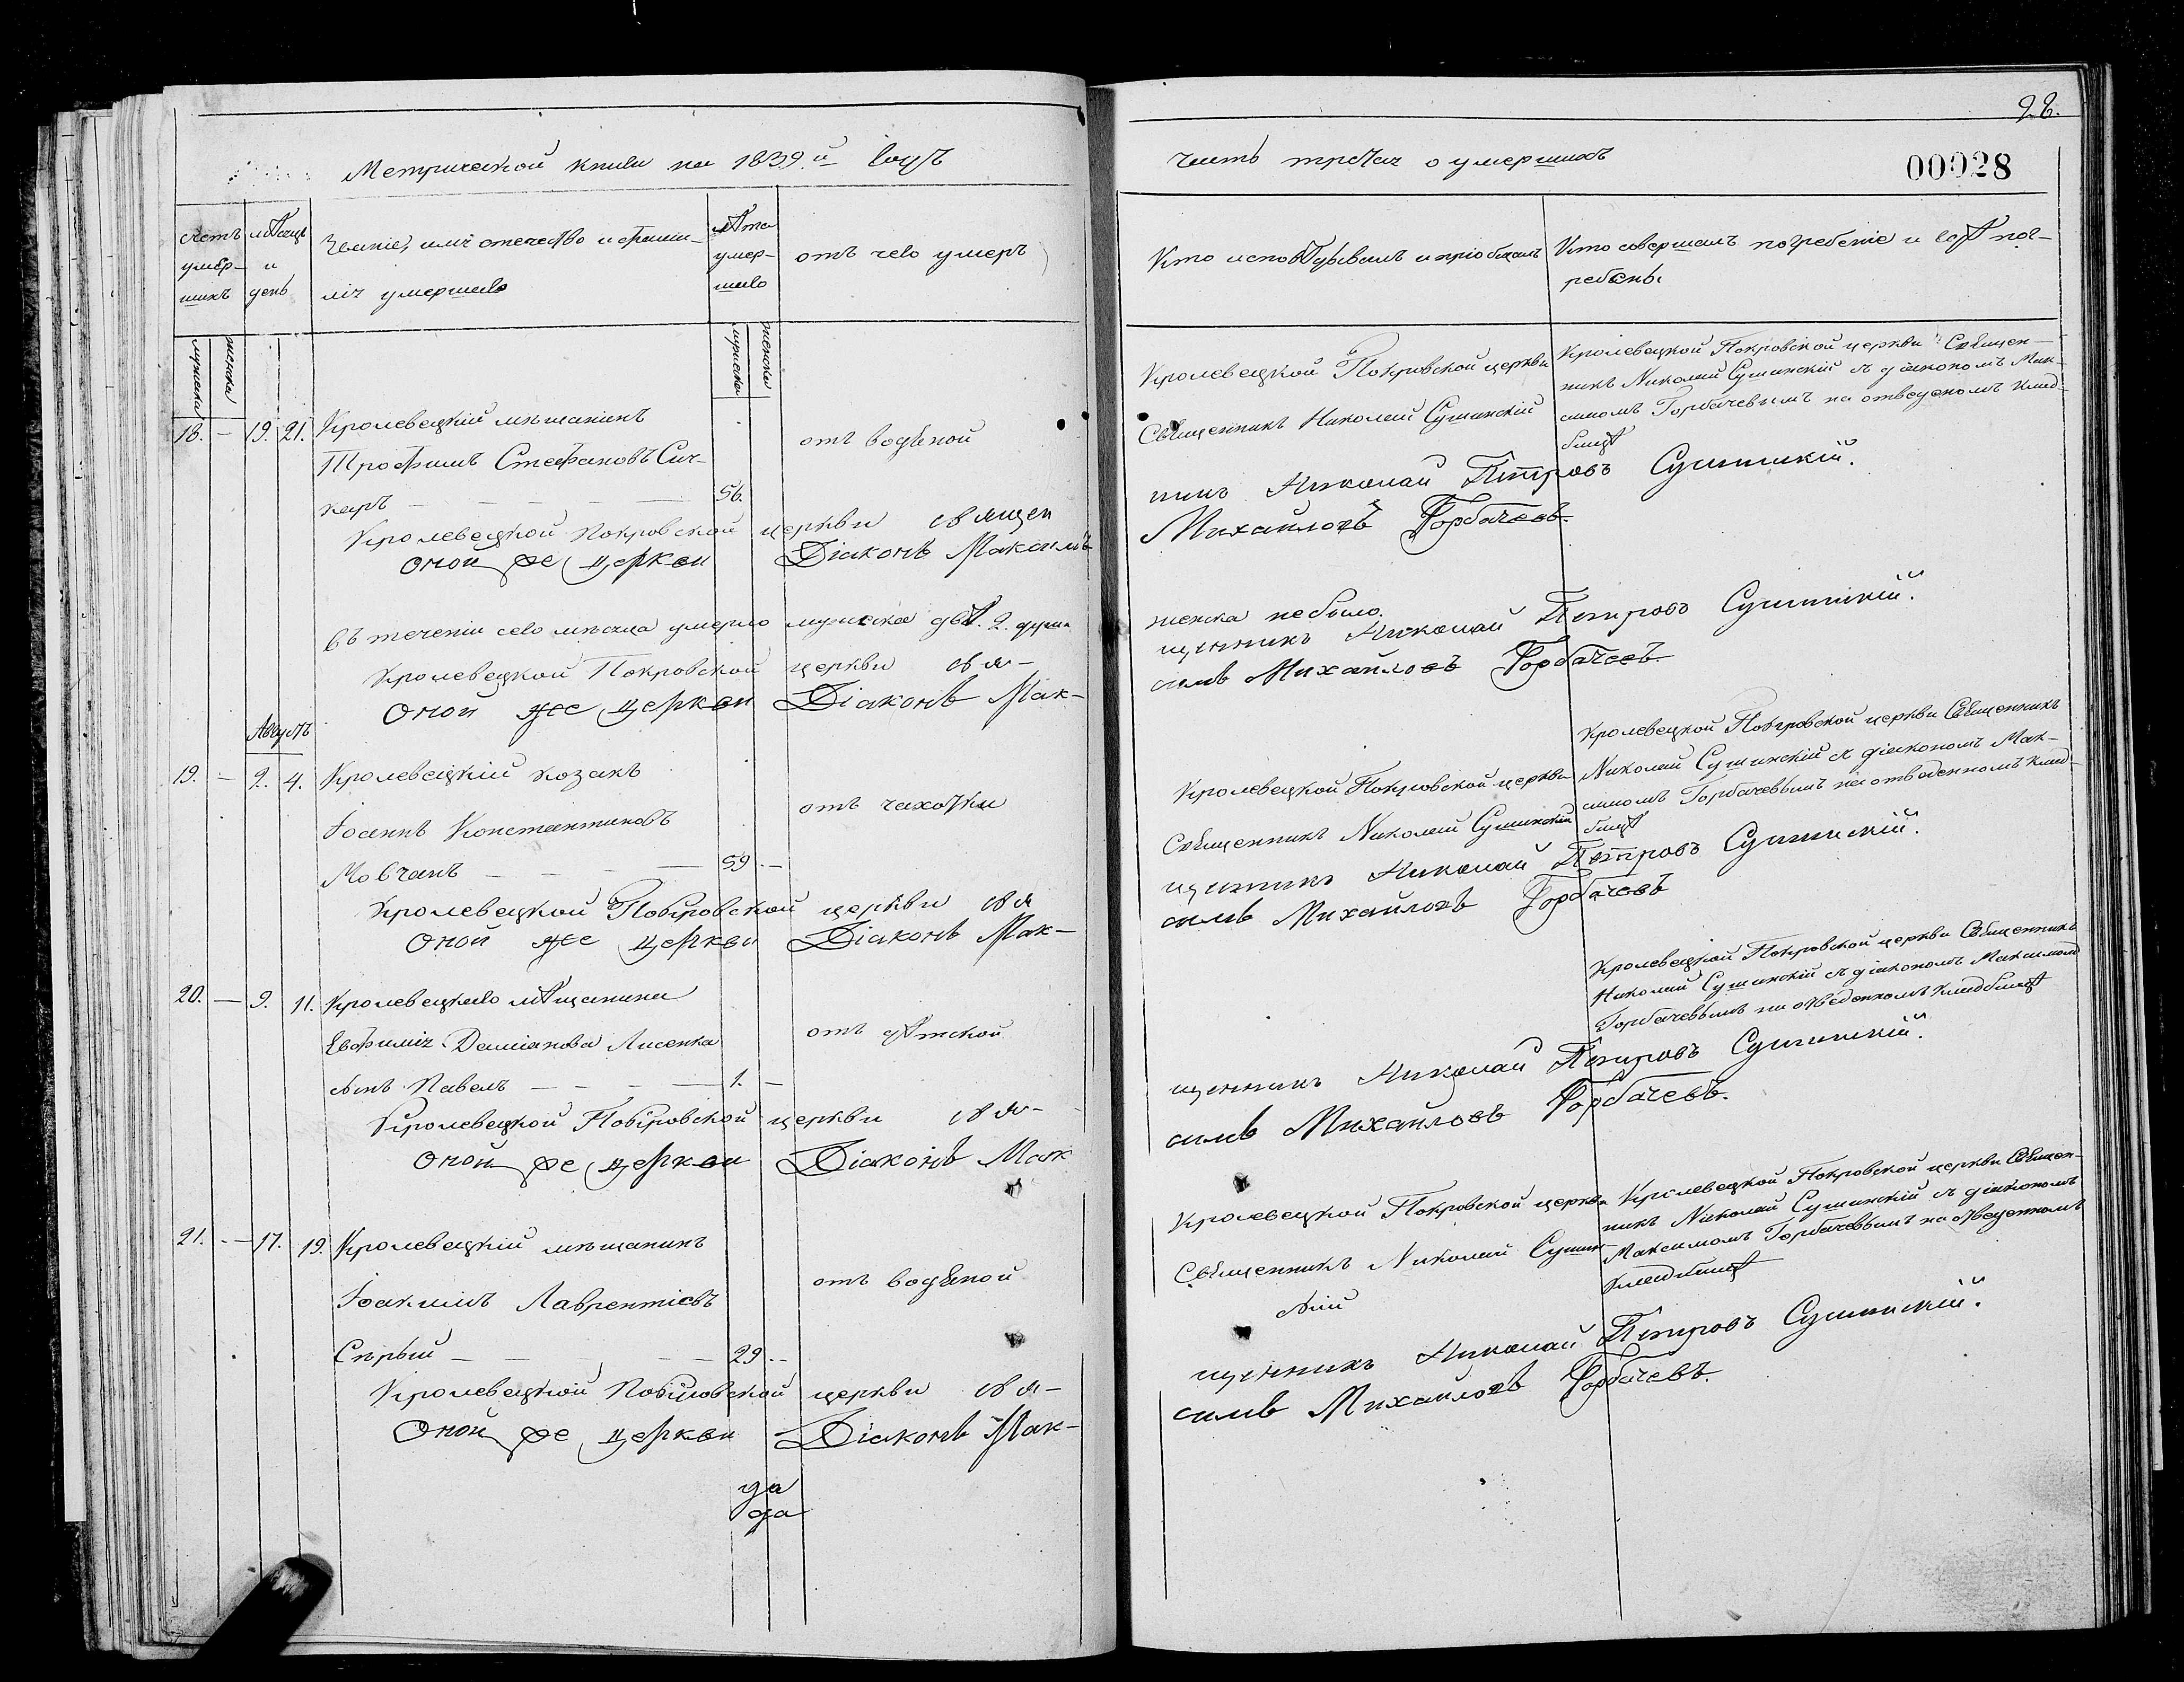 28.
Метрической книги на 1839.й годъ
часть третія о умершихъ
00028
счетъ умер-шихъ
мѣсяцъ и день
Званіе, имя отечество и фами-
лія умершаго
лѣта умер-шаго
отъ чего умеръ
Кто исповѣдывалъ и пріобщалъ
Кто совершалъ погребеніе и гдѣ пог-
ребены
мужеска
женска
мужеска
женска
18. — 19. 21. Кролевецкій мѣщанинъ
Трофимъ Стефановъ Сич-
каръ — 56.
отъ водяной
Кролевецкой Покровской церкви
Священникъ Николай Сушинскій
Кролевецкой Покровской церкви Священ-
никъ Николай Сушинскій съ діакономъ Мак-
симомъ Горбачевымъ на отведеномъ клад-
бищѣ
Кролевецкой Покровской церкви священ
никъ Николай Петровъ Сушинскій.
Оной же церкви Діаконъ Максимъ
Михайловъ Горбачевъ.
Въ теченіи сего мѣсяца умерло мужеска двѣ. 2. души
женска небыло.
Кролевецкой Покровской церкви свя-
щенникъ Николай Петровъ Сушинскій.
Оной же церкви Діаконъ Мак-
симъ Михайловъ Горбачевъ.
Августъ
19. — 2. 4. Кролевецкій козакъ
Іоаннъ Константиновъ
Мовчанъ — 59. —
отъ чахотки
Кролевецкой Покровской церкви
Священникъ Николай Сушинскій
Кролевецкой Покровской церкви Священникъ
Николай Сушинскій съ діакономъ Мак-
симомъ Горбачевымъ на отведенномъ клад-
бищѣ
Кролевецкой Покровской церкви свя
щенникъ Николай Петровъ Сушинскій.
Оной же церкви Діаконъ Мак-
симъ Михайловъ Горбачевъ
20. — 9. 11. Кролевецкаго мѣщанина
Евфимія Даміанова Лисенка
сынъ Павелъ — 1. —
отъ дѣтской
Кролевецкой Покровской церкви Священникъ
Николай Сушинскій съ діакономъ Максимомъ
Горбачевымъ на отведенномъ кладбищѣ
Кролевецкой Покровской церкви свя-
щенникъ Николай Петровъ Сушинскій.
Оной же церкви Діаконъ Мак
симъ Михайловъ Горбачевъ.
21. — 17. 19. Кролевецкій мѣщанинъ
Іоакимъ Лаврентіевъ
Сѣрый — 29. —
отъ водяной
Кролевецкой Покровской церкви
Священникъ Николай Сушин-
скій
Кролевецкой Покровской церкви Священ-
никъ Николай Сушинскій съ діакономъ
Максимомъ Горбачевымъ на отведенномъ
кладбищѣ
Кролевецкой Покровской церкви свя-
щенникъ Николай Петровъ Сушинскій.
Оной же церкви Діаконъ Мак-
симъ Михайловъ Горбачевъ.